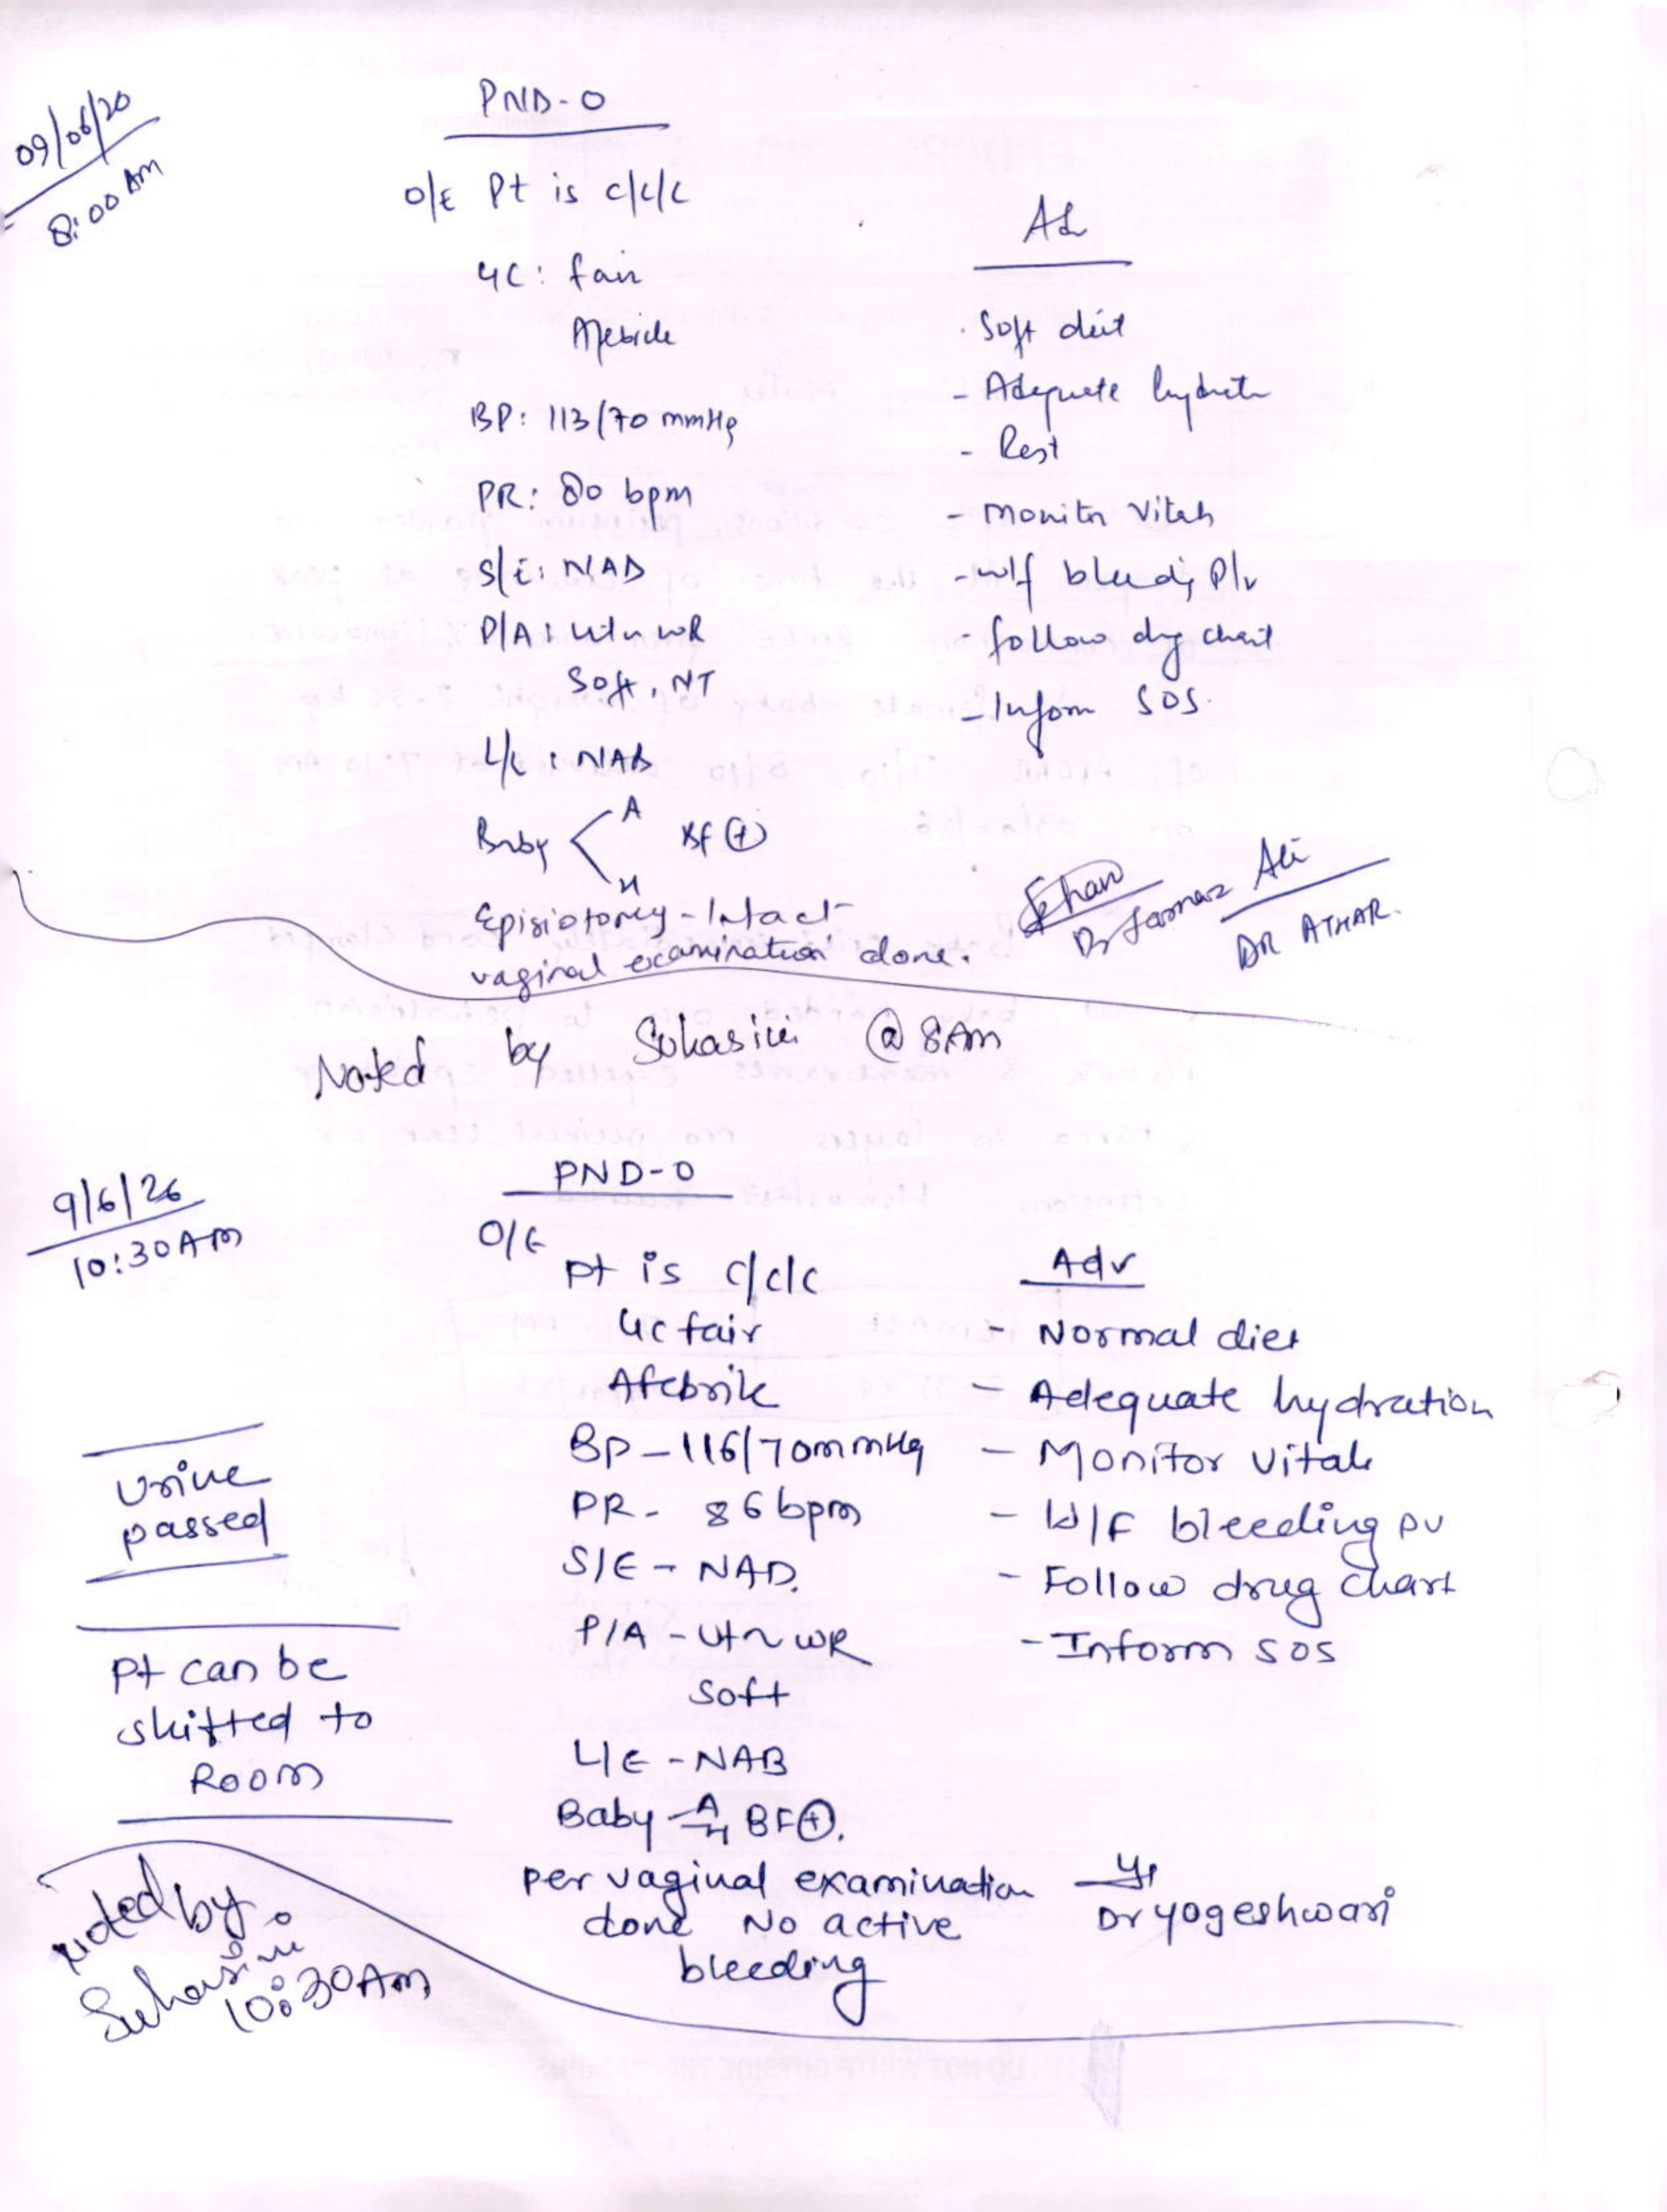 09/06/20
8:00 AM
PND-0
O/E Pt is c/c/c
GC: fair
Afebrile
BP: 113/70 mmHg
PR: 80 bpm
S/E: NAD
P/A: Ut~WR
Soft, NT
L/E: NAB
Baby A BF (+)
H
Episiotomy - Intact
vaginal examination done.
Adv
- Soft diet
- Adequate hydratn
- Rest
- Monitor Vitals
- W/f bleeding P/v
- follow drug chart
- Inform SOS.
Khan
Dr Ali
DR ATHAR.
Noted by Suhasini @ 8AM
9/6/26
10:30AM
PND-0
O/E
Pt is c/c/c
GC fair
Afebrile
BP - 116/70mmHg
PR - 86bpm
S/E - NAD.
P/A - Ut~WR
Soft
L/E - NAB
Baby A H BF(+).
per vaginal examination
done No active
bleeding
Adv
- Normal diet
- Adequate hydration
- Monitor Vitals
- W/F bleeding PV
- Follow drug chart
- Inform SOS
Urine
passed
Pt can be
shifted to
Room
Dr yogeshwari
Noted by
Suhasini
10:30AM